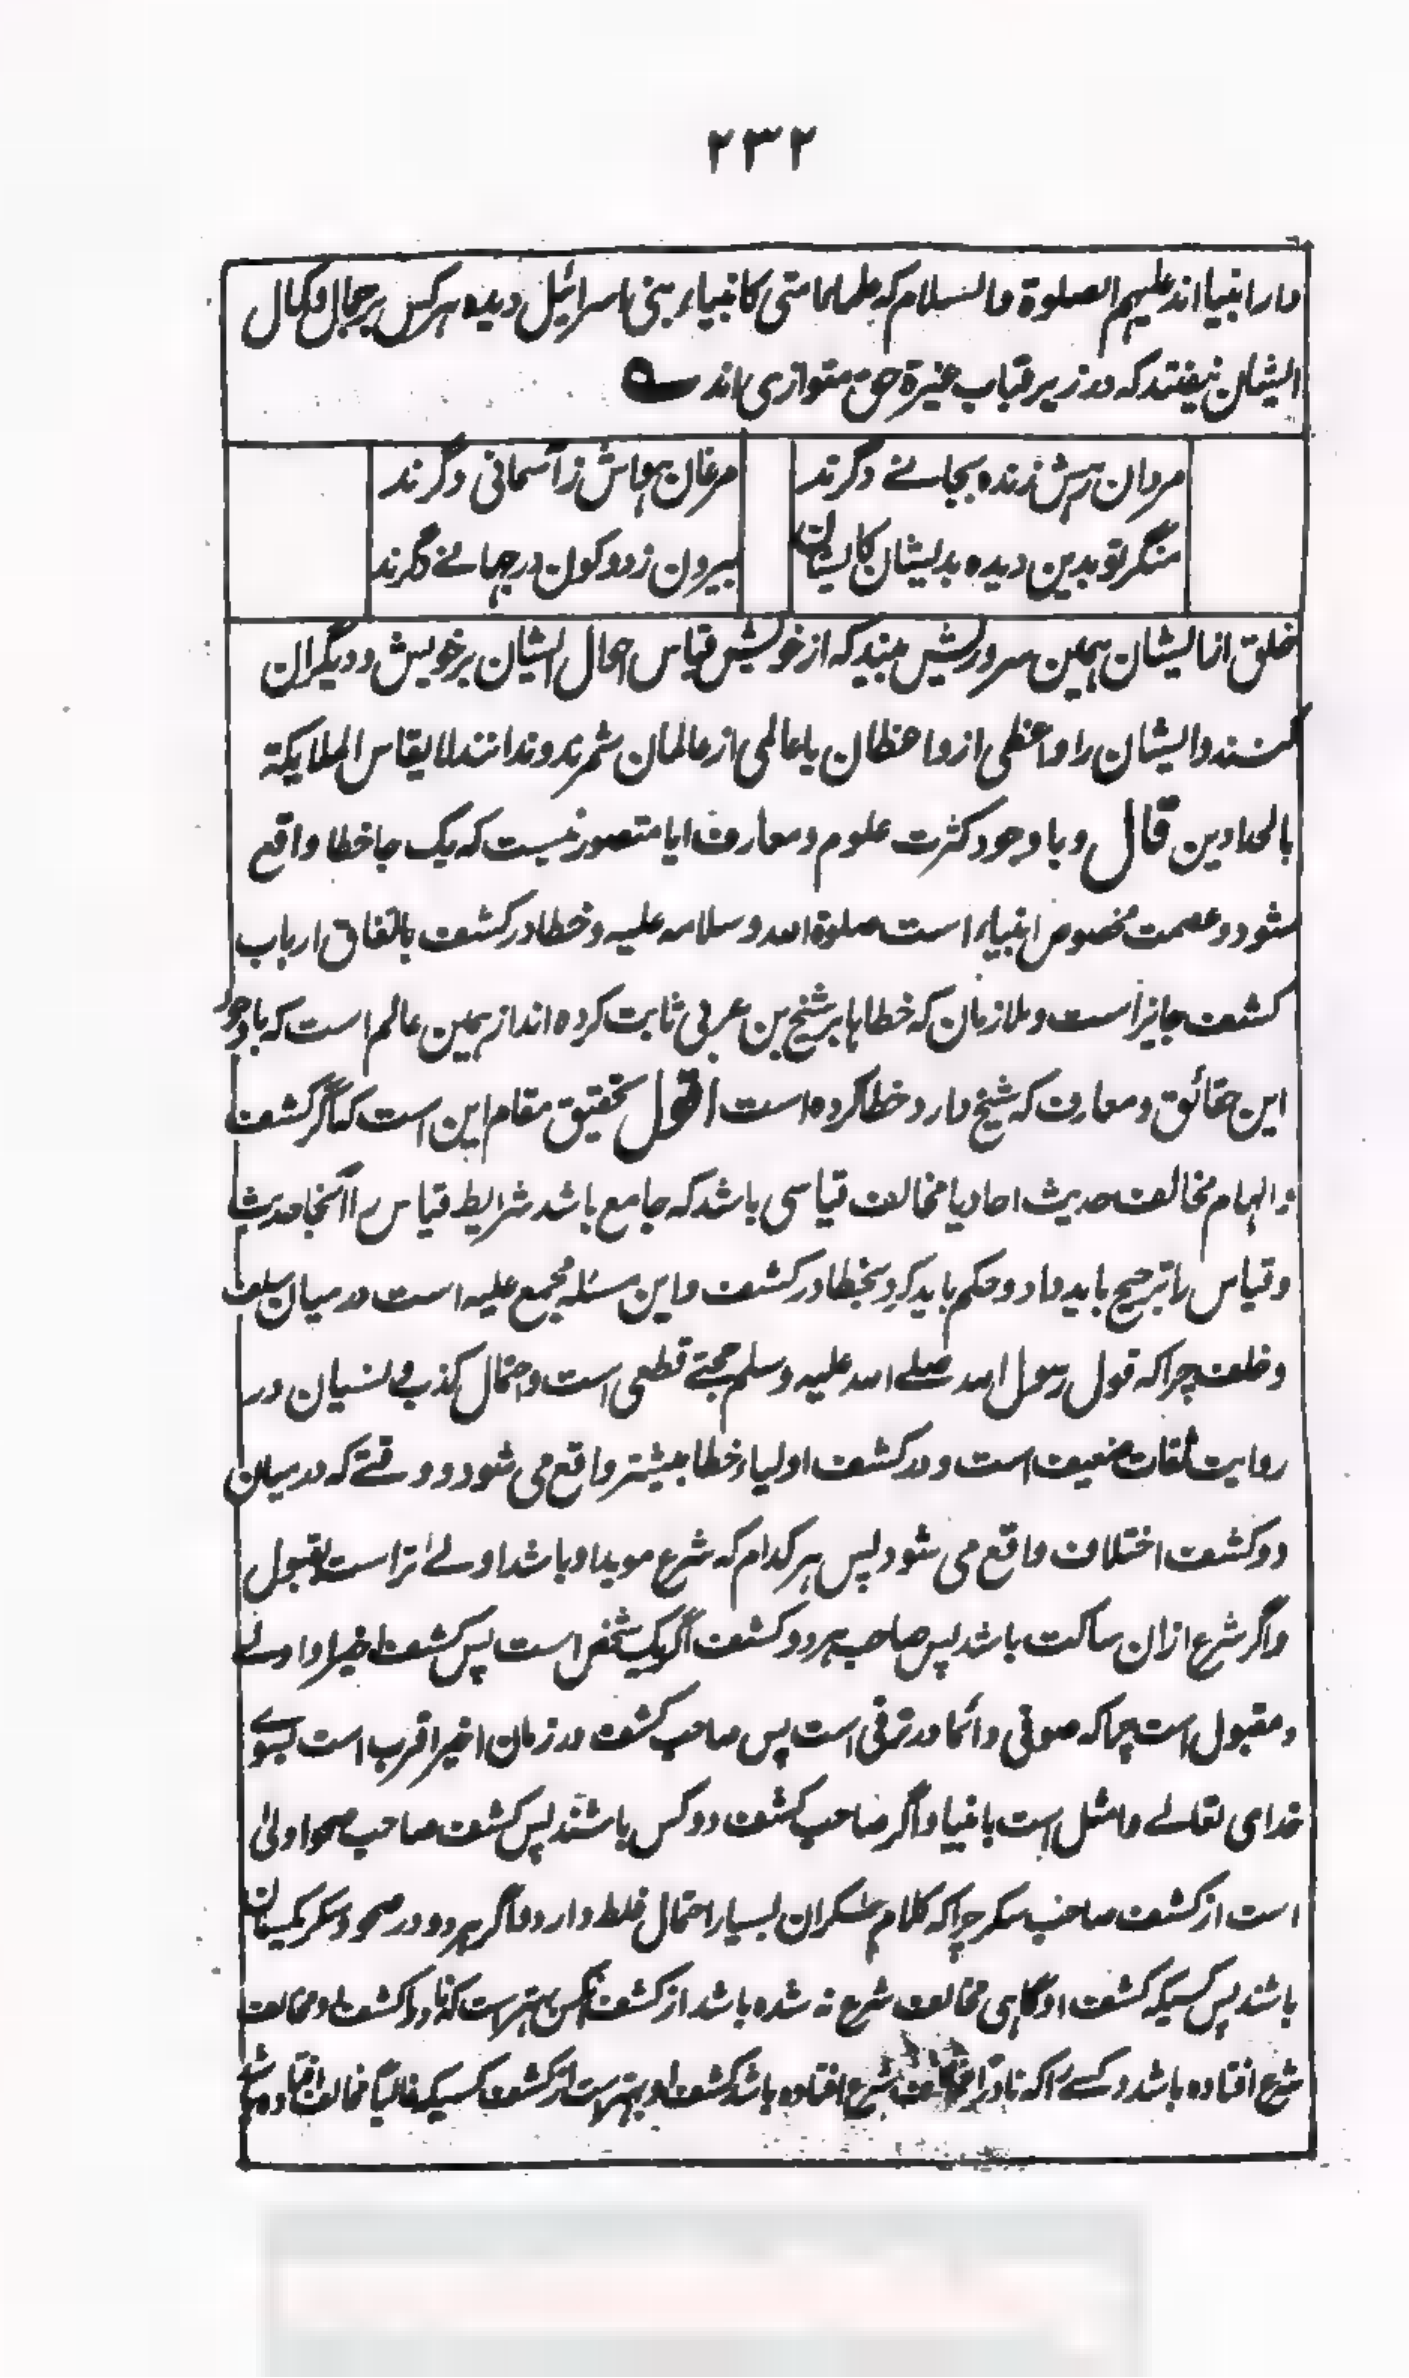 ۲۳۲
دارا نبیا اند علیهم الصلوة والسلام که علماء امتی کانبیاء بنی اسرائیل دیده هر کس بر جمال و کمال
ایشان نیفتد که در زیر قباب غیرة حق متواری اند ے
مردان رهش زنده بجانے دگرند
مرغان هواش ز آسمانی دگرند
منگر تو بدین دیده بدیشان کایشان
بیرون ز دو کون در جهانے دگرند
خلق از ایشان همین سر و ریش بیند که از خویش قیاس احوال ایشان بر خویش و دیگران
کنند و ایشان را واعظی از واعظان یا عالمی از عالمان شمرند و ندانند لا یقاس الملایکة
بالحدادین قال و با وجود کثرت علوم و معارف ایا متصور نیست که یک جا خطا واقع
شود و عصمت مخصوص انبیاء است صلوة الله و سلامه علیه و خطا در کشف باتفاق ارباب
کشف جایز است و ملازمان که خطاها بر شیخ بن عربی ثابت کرده اند از همین عالم است که باوجود
این حقائق و معارف که شیخ دارد خطا کرده است اقول تحقیق مقام این است که اگر کشف
و الهام مخالف حدیث احاد یا مخالف قیاسی باشد که جامع باشد شرایط قیاس را آنجا حدیث
و قیاس را ترجیح باید داد و حکم باید کرد بخطا در کشف و این مسئله مجمع علیه است در میان سلف
و خلف چراکه قول رسول الله صلے الله علیه و سلم حجتے قطعی است و احتمال کذب و نسیان در
روایت ثقات ضعیف است و در کشف اولیاء خطا بیشتر واقع می شود و وقتے که در میان
دو کشف اختلاف واقع می شود پس هر کدام که شرع موید او باشد اولے تر است بقبول
و اگر شرع ازان ساکت باشد پس صاحب هر دو کشف اگر یک شخص است پس کشف اخیر او اولے
و مقبول است چراکه صوفی دائما در ترقی است پس صاحب کشف در زمان اخیر اقرب است بسوے
خدای تعالے و امثل است بانبیا و اگر صاحب کشف دو کس باشند پس کشف صاحب صحو اولی
است از کشف صاحب سکر چراکه کلام سکران بسیار احتمال غلط دارد و اگر هر دو در صحو و سکر یکسان
باشند پس کسیکه کشف او گاهی مخالف شرع نه شده باشد از کشف آنکس بهتر است که نادرا کشف او مخالف
شرع افتاده باشد و کسے را که نادرا مخالف شرع افتاده باشد کشف او بهتر است از کشف کسیکه غالبا مخالف افتاده باشد